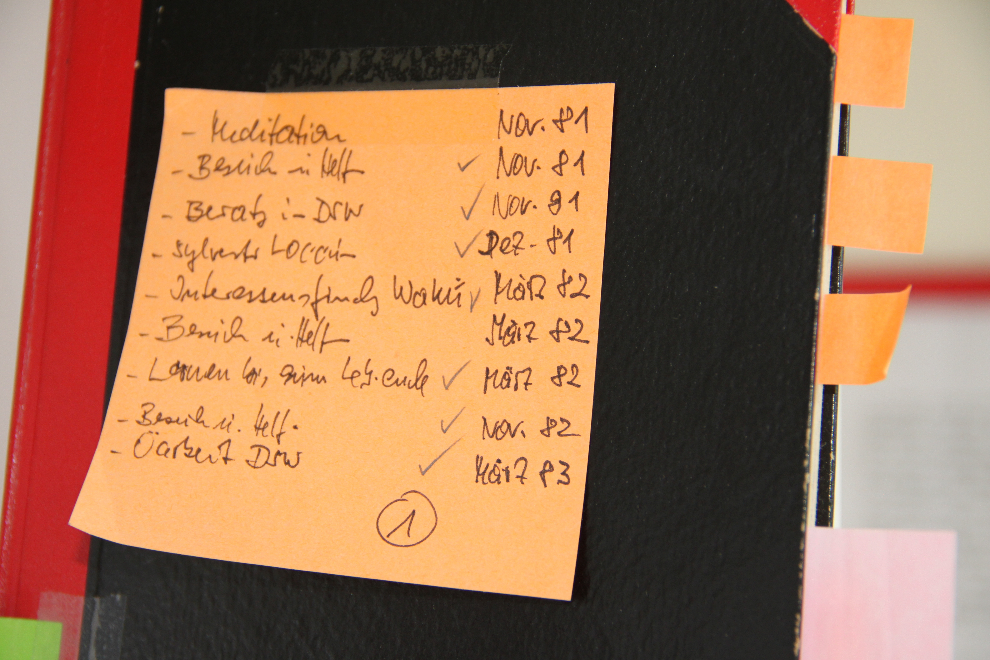 - Meditation Nov. 81
- Besuch in Helf ✓ Nov. 81
- Beratg i- DSW ✓ Nov. 81
- Sylvester ✓ Dez. 81
- Interessensfindg ✓ März 82
- Besuch i. Helf März 82
- Lernen bis zum Leb.ende ✓ März 82
- Besuch i. Helf. ✓ Nov. 82
- DSW ✓ März 83
1